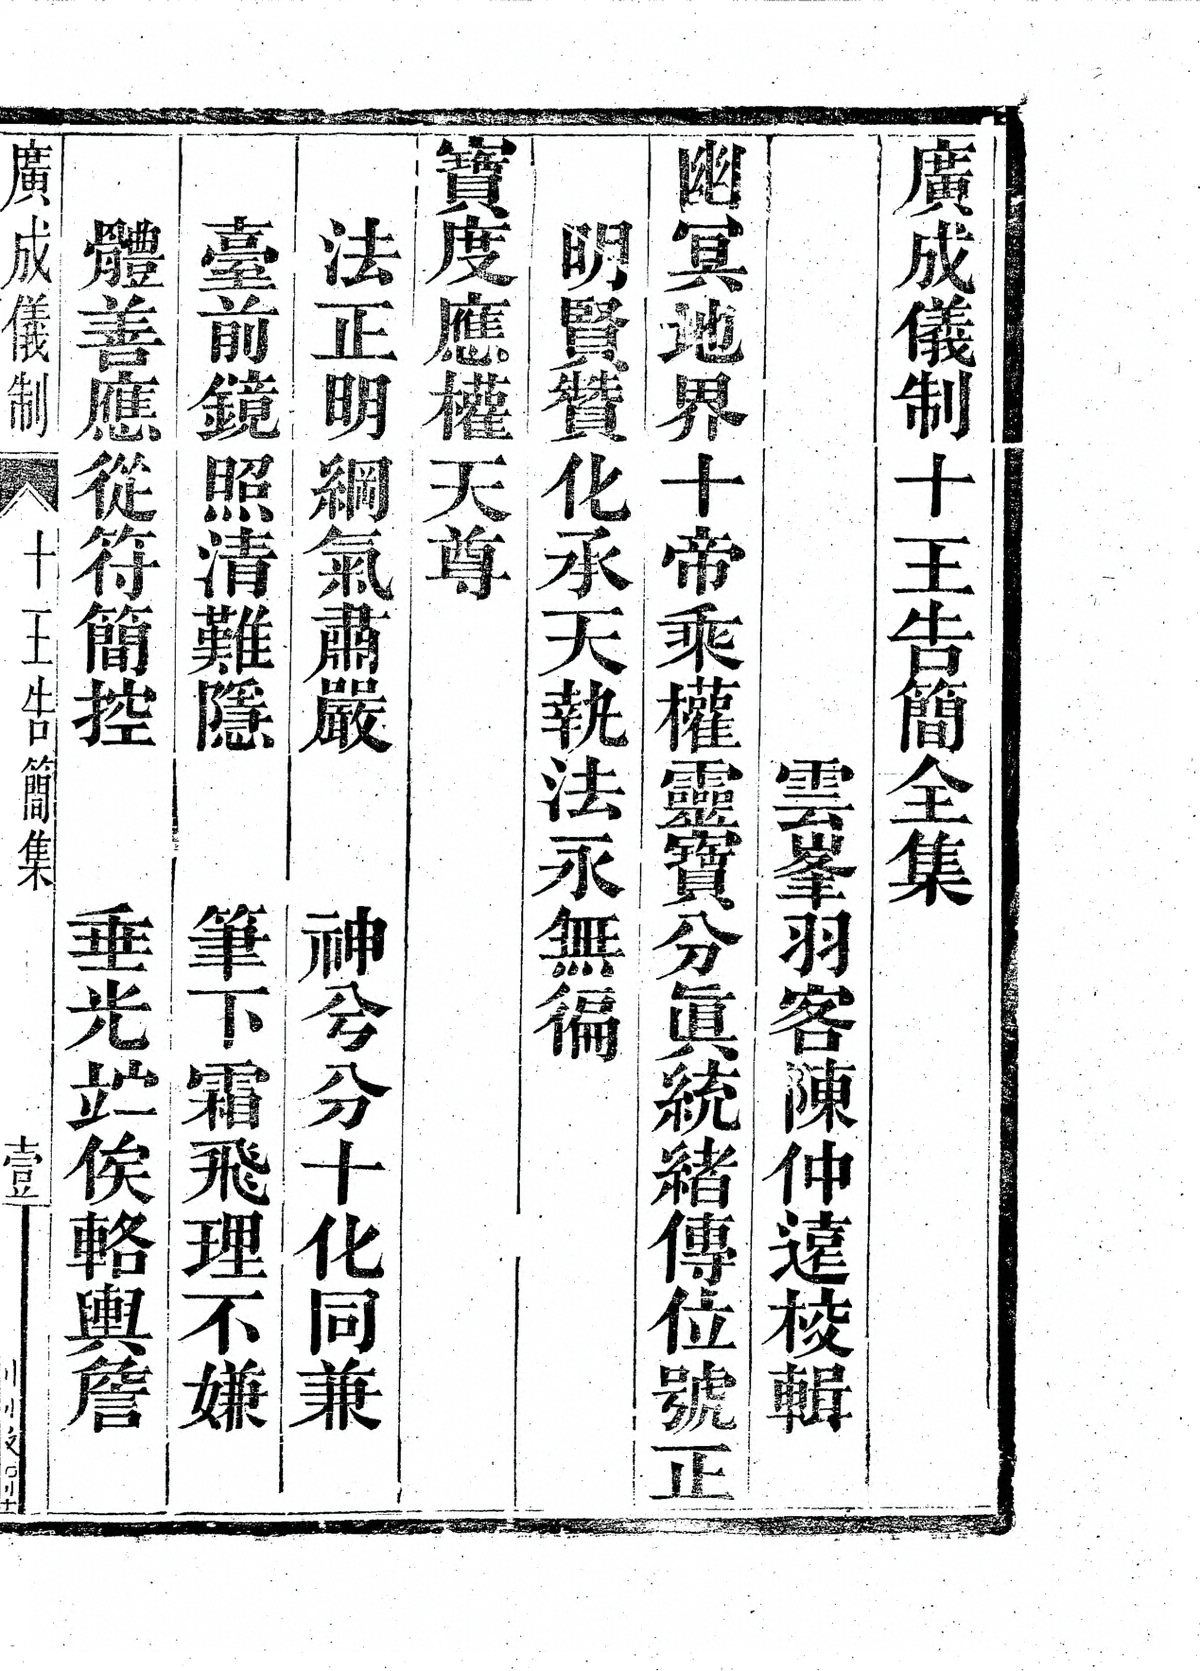 廣成儀制十王告簡全集
雲峯羽客陳仲遠校輯
幽冥地界十帝乘權靈寶分眞統緒傳位號正
明賢贊化承天執法永無徧
寶度應權天尊
法正明綱氣肅嚴 神兮分十化同兼
臺前鏡照清難隱 筆下霜飛理不嫌
體善應從符簡控 垂光竚俟輅輿詹
廣成儀制 十王告簡集 壹